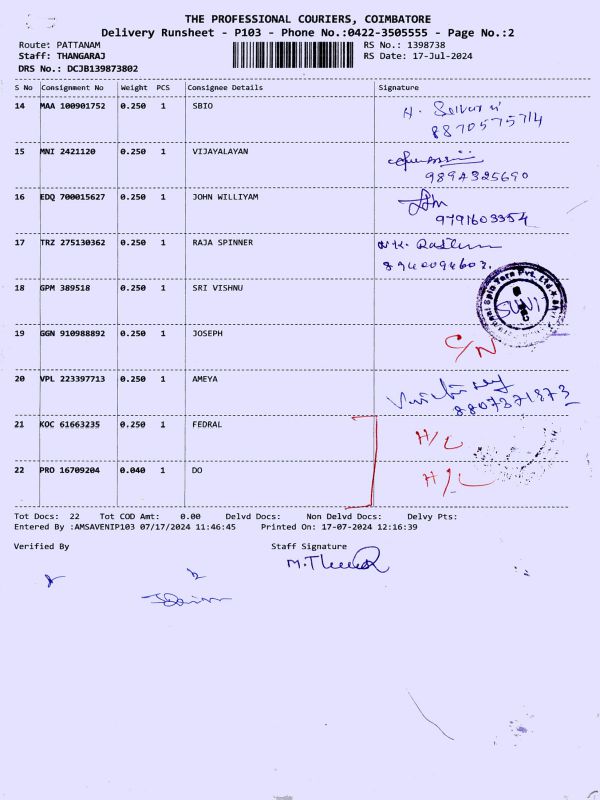 THE PROFESSIONAL COURIERS, COIMBATORE
Delivery Runsheet - P103 - Phone No.:0422-3505555 - Page No.:2
Route: PATTANAM RS No.: 1398738
Staff: THANGARAJ RS Date: 17-Jul-2024
DRS No.: DCJB139873802
S No Consignment No Weight PCS Consignee Details Signature
14 MAA 100901752 0.250 1 SBIO
8870575714
15 MNI 2421120 0.250 1 VIJAYALAYAN
9894325690
16 EDQ 700015627 0.250 1 JOHN WILLIYAM
9791603354
17 TRZ 275130362 0.250 1 RAJA SPINNER
8940094602.
18 GPM 389518 0.250 1 SRI VISHNU
19 GGN 910988892 0.250 1 JOSEPH C/N
20 VPL 223397713 0.250 1 AMEYA
8807371873
21 KOC 61663235 0.250 1 FEDRAL H/L
22 PRO 16709204 0.040 1 DO H/L
Tot Docs: 22 Tot COD Amt: 0.00 Delvd Docs: Non Delvd Docs: Delvy Pts:
Entered By :AMSAVENIP103 07/17/2024 11:46:45 Printed On: 17-07-2024 12:16:39
Verified By Staff Signature